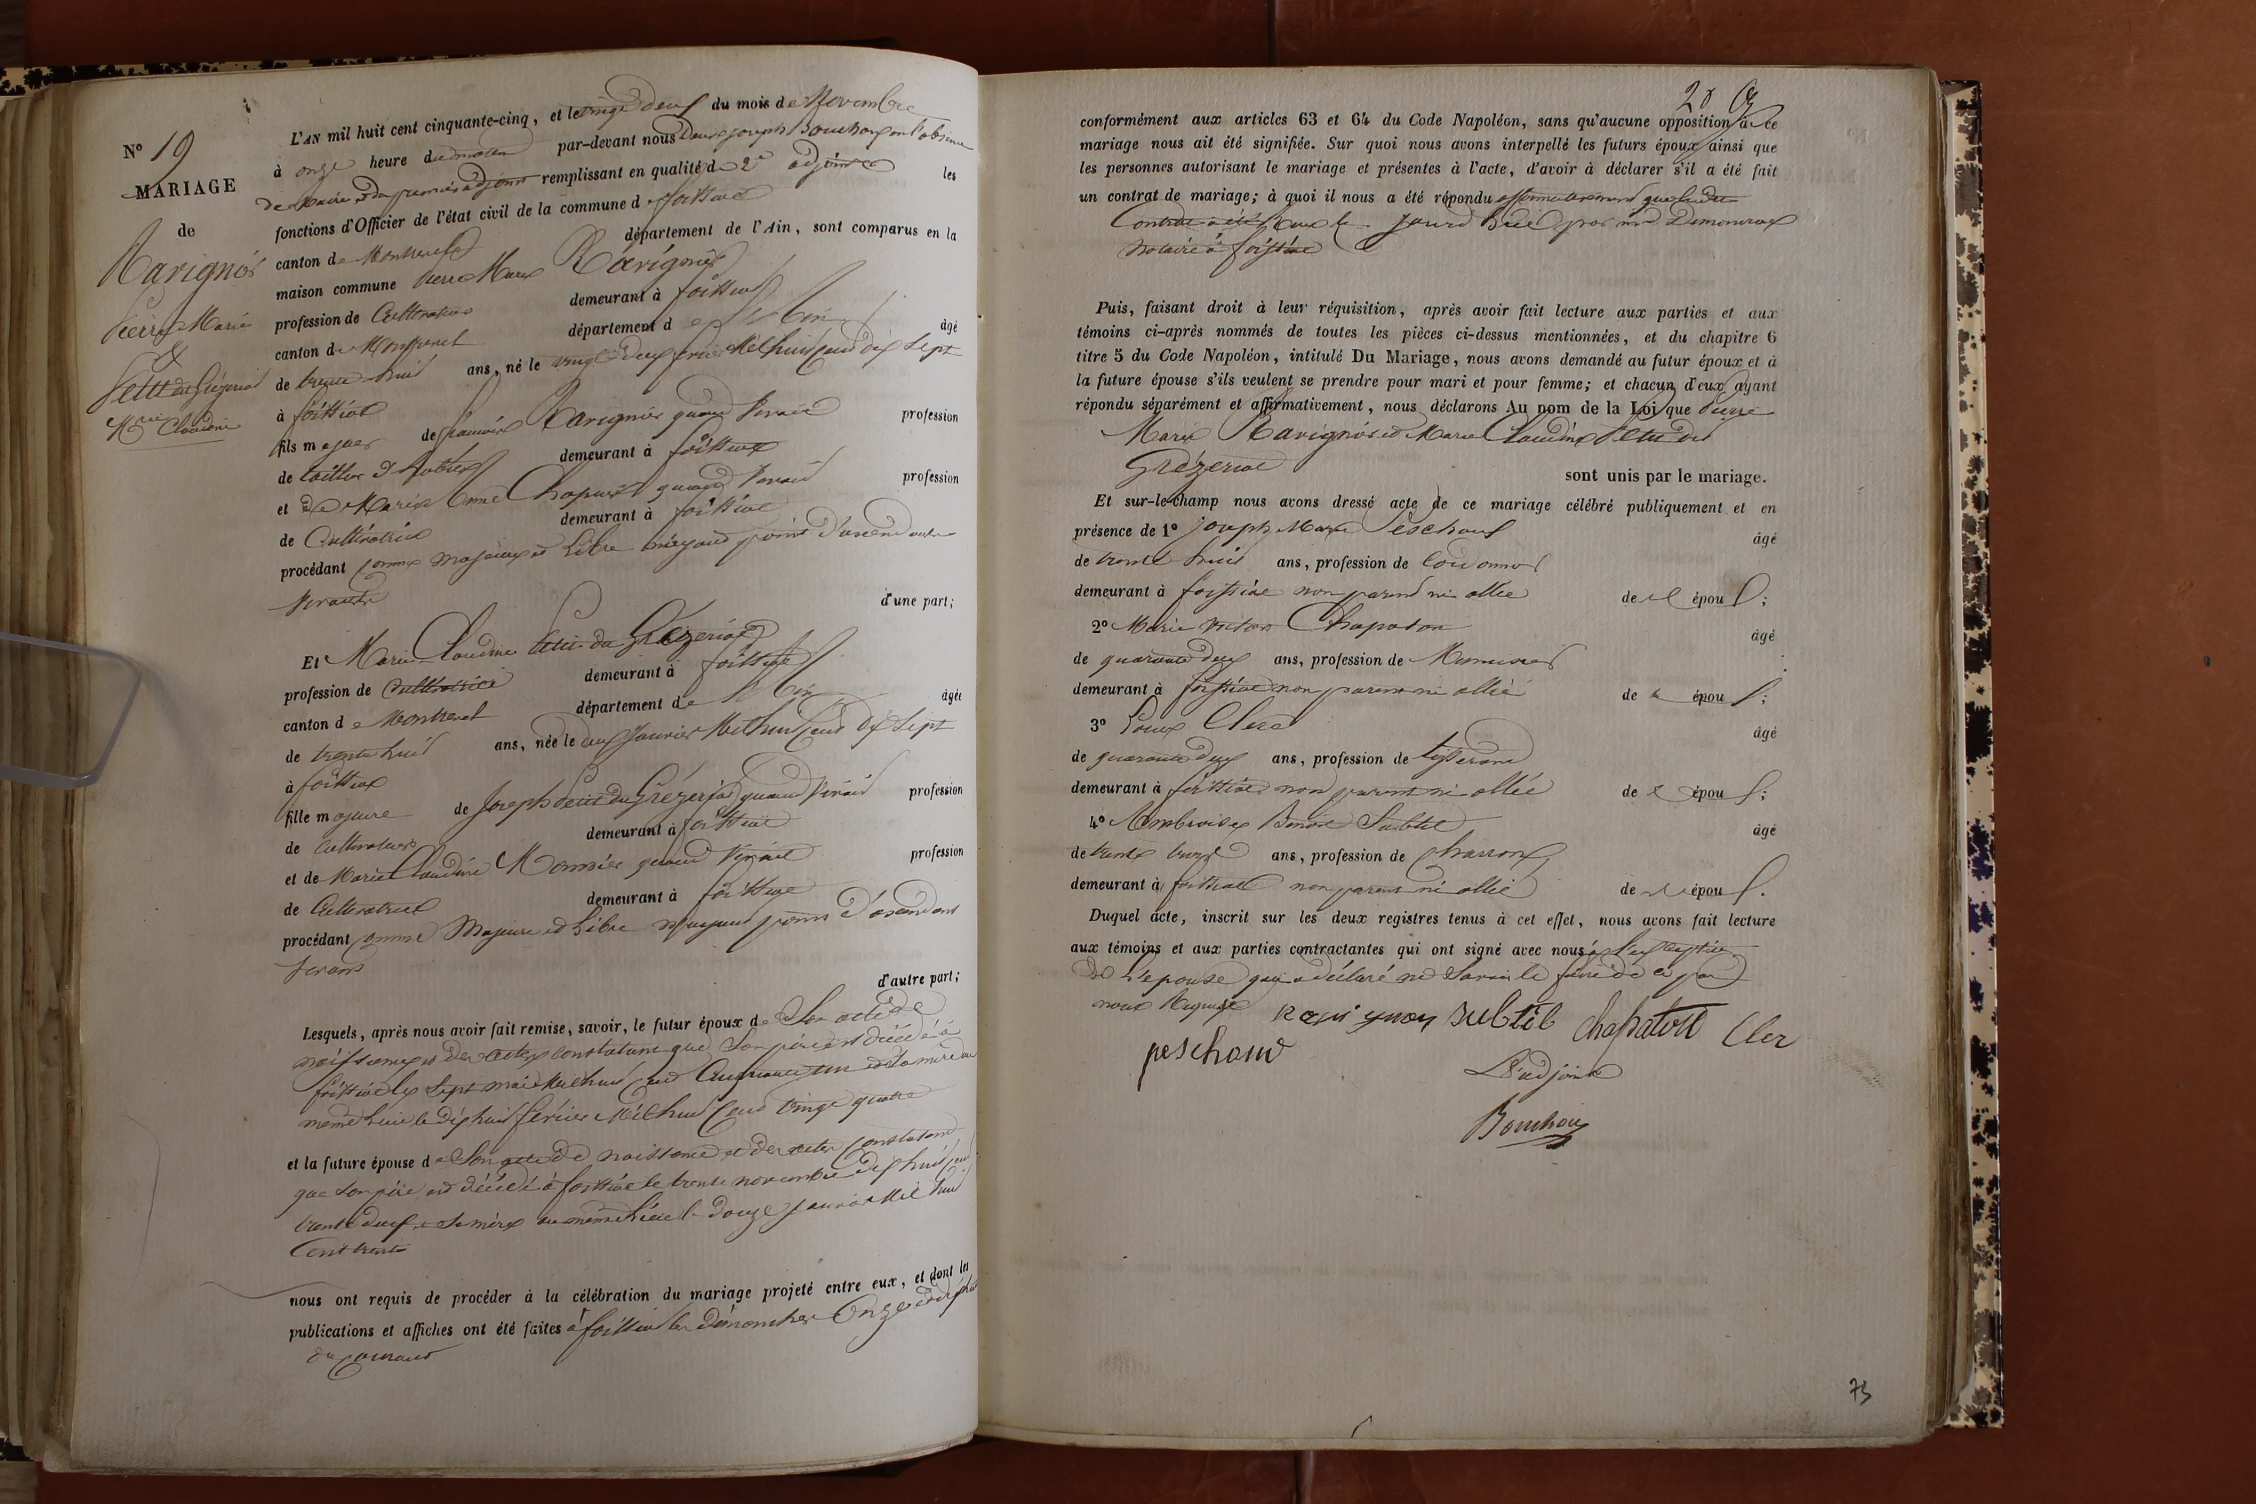 N° 19
MARIAGE
de
Ravignós
Pierre Marie
&
Petit du Grézeriat
Mrie Claudine
L'AN mil huit cent cinquante-cinq, et le vingt deux du mois de Novembre
à onze heure du matin par-devant nous joseph Bouchoux en l'absence
de Maire et du premier adjoint remplissant en qualité de 2e adjoint les
fonctions d'Officier de l'état civil de la commune de foissiat
canton de Montrevel département de l'Ain, sont comparus en la
maison commune Pierre Marie Ravignós
profession de Cultivateur demeurant à foissiat
canton de Montrevel département de l'Ain âgé
de trente huit ans, né le vingt deux Mil huit cent dix sept
à foissiat
fils majeur de Ravignós quand vivait profession
de tailleur d'habits demeurant à foissiat
et de Marie Anne quand vivait profession
de Cultivatrice demeurant à foissiat
procédant comme majeur et libre n'ayant point d'ascendants
vivants
d'une part;
Et Marie Claudine Petit du Grézeriat
profession de Cultivatrice demeurant à foissiat
canton de Montrevel département de l'Ain âgée
de trente huit ans, née le deux Janvier Mil huit cent dix sept
à foissiat
fille majeure de Joseph Petit du Grézeriat quand vivait profession
de Cultivateur demeurant à foissiat
et de Marie Claudine Monnier quand vivait profession
de Cultivatrice demeurant à foissiat
procédant comme Majeure et libre n'ayant point d'ascendants
vivants
d'autre part;
Lesquels, après nous avoir fait remise, savoir, le futur époux de Son acte de
naissance et des actes constatant que Son père est décédé à
foissiat le sept mai Mil huit cent et sa mère au
même lieu le dix huit février Mil huit Cent vingt quatre
et la future épouse de Son acte de naissance et des actes constatant
que Son père est décédé à foissiat le trente novembre dix huit cent
trente deux et Sa mère au même lieu le douze Janvier Mil huit
Cent trente
nous ont requis de procéder à la célébration du mariage projeté entre eux, et dont les
publications et affiches ont été faites à foissiat les dimanches Onze et dix huit
du courant
28
conformément aux articles 63 et 64 du Code Napoléon, sans qu'aucune opposition à ce
mariage nous ait été signifiée. Sur quoi nous avons interpellé les futurs époux ainsi que
les personnes autorisant le mariage et présentes à l'acte, d'avoir à déclarer s'il a été fait
un contrat de mariage; à quoi il nous a été répondu affirmativement que ledit
Contrat a été reçu le jourd'hui par me
Notaire à foissiat
Puis, faisant droit à leur réquisition, après avoir fait lecture aux parties et aux
témoins ci-après nommés de toutes les pièces ci-dessus mentionnées, et du chapitre 6
titre 5 du Code Napoléon, intitulé Du Mariage, nous avons demandé au futur époux et à
la future épouse s'ils veulent se prendre pour mari et pour femme; et chacun d'eux ayant
répondu séparément et affirmativement, nous déclarons Au nom de la Loi que Pierre
Marie Ravignós et Marie Claudine Petit du
Grézeriat
sont unis par le mariage.
Et sur-le-champ nous avons dressé acte de ce mariage célébré publiquement et en
présence de 1° joseph Marie Peschoux âgé
de trente huit ans, profession de Cordonnier
demeurant à foissiat non parent ni allié de l' époux;
2° Marie Victor Chapaton âgé
de quarante deux ans, profession de Menuisier
demeurant à foissiat non parent ni allié de l' époux;
3° Louis Clerc âgé
de quarante deux ans, profession de tisserand
demeurant à foissiat non parent ni allié de l' époux;
4° Ambroise Benoit Subtil âgé
de trente ans, profession de Charron
demeurant à foissiat non parent ni allié de l' époux.
Duquel acte, inscrit sur les deux registres tenus à cet effet, nous avons fait lecture
aux témoins et aux parties contractantes qui ont signé avec nous à l'exception
de l'epouse qui a déclaré ne Savoir le faire de ce par
nous Requise
subtil chapaton Cler
peschoux
L'adjoint
Bouchoux
73